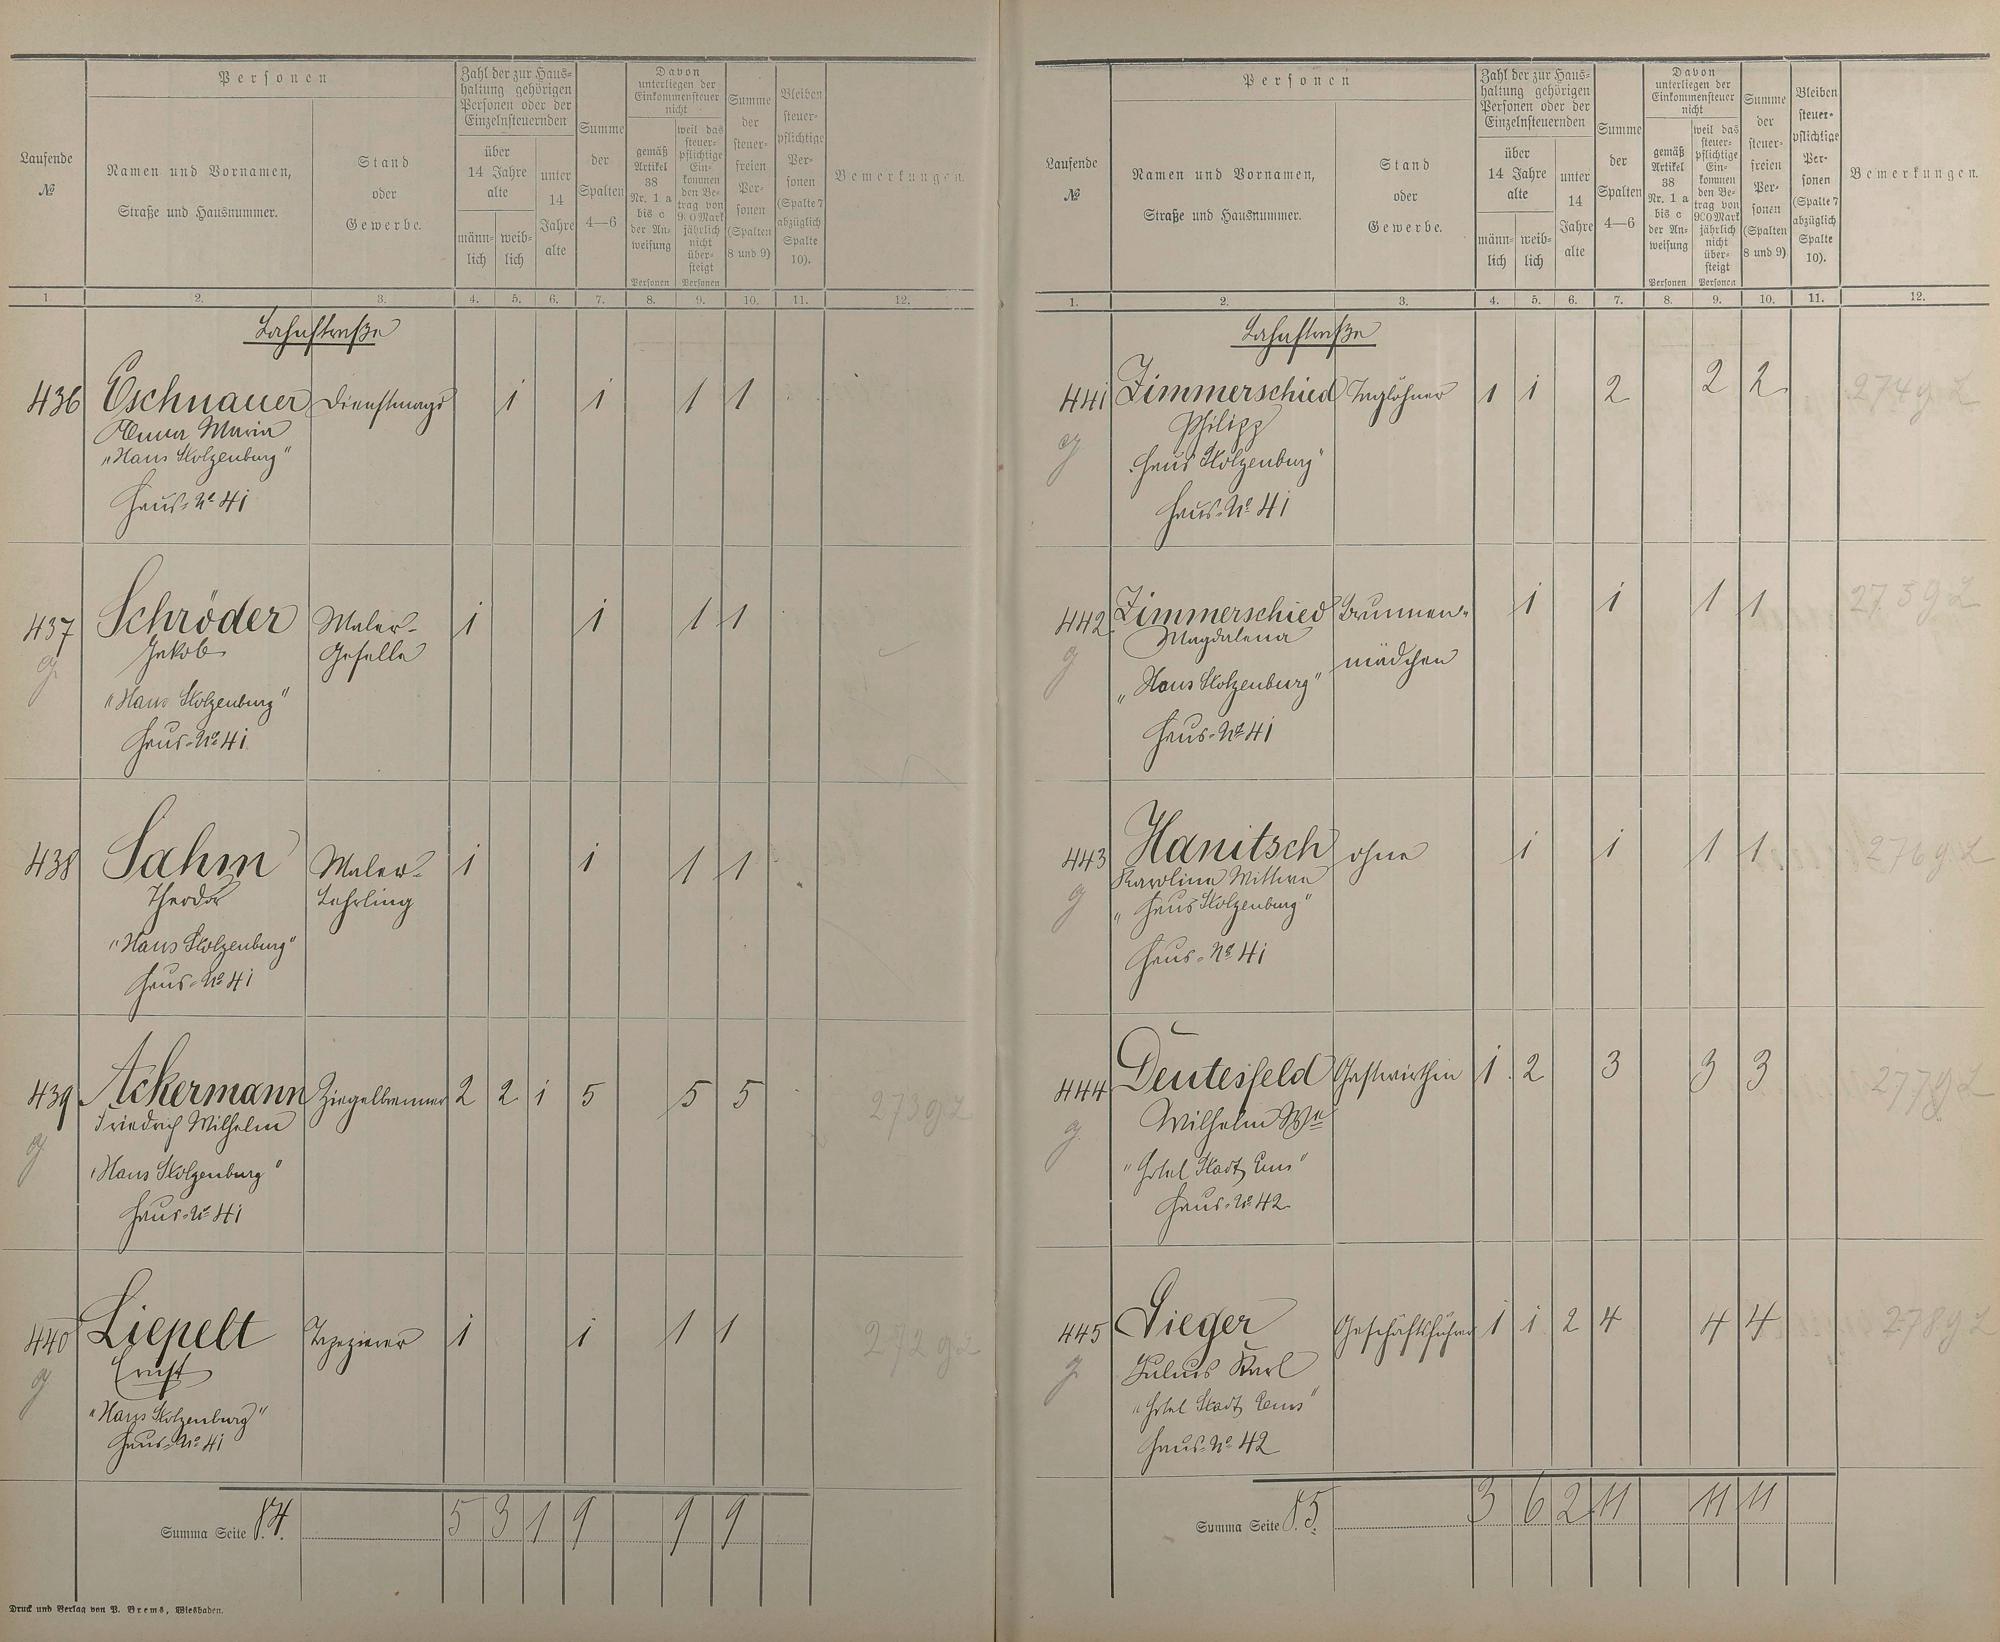 Laufende
№
Personen
Namen und Vornamen,
Straße und Hausnummer.
Stand
oder
Gewerbe.
Zahl der zur Haus-
haltung gehörigen
Personen oder der
Einzelnsteuernden
über
14 Jahre
alte
männ-
lich
weib-
lich
unter
14
Jahre
alte
Summe
der
Spalten
4—6
Davon
unterliegen der
Einkommensteuer
nicht
gemäß
Artikel
38
Nr. 1 a
bis c
der An-
weisung
Personen
weil das
steuer-
pflichtige
Ein-
kommen
den Be-
trag von
900 Mark
jährlich
nicht
über-
steigt
Personen
Summe
der
steuer-
freien
Per-
sonen
(Spalten
8 und 9)
Bleiben
steuer-
pflichtige
Per-
sonen
(Spalte 7
abzüglich
Spalte
10).
Bemerkungen.
1. 2. 3. 4. 5. 6. 7. 8. 9. 10. 11. 12.
Lahnstraße
436 Eschnauer Dienstmagd 1 1 1 1
Anna Maria
"Haus Stolzenburg"
Haus-No 41
437 Schröder Maler- 1 1 1 1
g Jakob Geselle
"Haus Stolzenburg"
Haus-No 41
438 Sahm Maler- 1 1 1 1
Theodor Lehrling
"Haus Stolzenburg"
Haus-No 41
439 Ackermann Ziegelbrenner 2 2 1 5 5 5 273 g L
g Friedrich Wilhelm
"Haus Stolzenburg"
Haus-No 41
440 Liepelt Tapezierer 1 1 1 1 272 g L
g Ernst
"Haus Stolzenburg"
Haus-No 41
Summa Seite 84. 5 3 1 9 9 9
Druck und Verlag von P. Brems, Wiesbaden.
Laufende
№
Personen
Namen und Vornamen,
Straße und Hausnummer.
Stand
oder
Gewerbe.
Zahl der zur Haus-
haltung gehörigen
Personen oder der
Einzelnsteuernden
über
14 Jahre
alte
männ-
lich
weib-
lich
unter
14
Jahre
alte
Summe
der
Spalten
4—6
Davon
unterliegen der
Einkommensteuer
nicht
gemäß
Artikel
38
Nr. 1 a
bis c
der An-
weisung
Personen
weil das
steuer-
pflichtige
Ein-
kommen
den Be-
trag von
900 Mark
jährlich
nicht
über-
steigt
Personen
Summe
der
steuer-
freien
Per-
sonen
(Spalten
8 und 9)
Bleiben
steuer-
pflichtige
Per-
sonen
(Spalte 7
abzüglich
Spalte
10).
Bemerkungen.
1. 2. 3. 4. 5. 6. 7. 8. 9. 10. 11. 12.
Lahnstraße
441 Zimmerschied Taglöhner 1 1 2 2 2 274 g L
g Philipp
"Haus Stolzenburg"
Haus-No 41
442 Zimmerschied Brunnen- 1 1 1 1 275 g L
g Magdalena mädchen
"Haus Stolzenburg"
Haus-No 41
443 Hanitsch ohne 1 1 1 1 276 g L
g Karoline Wittwe
"Haus Stolzenburg"
Haus-No 41
444 Deutesfeld Gastwirthin 1 2 3 3 3 277 g L
g Wilhelm We
"Hotel Stadt Ems"
Haus-No 42
445 Sieger Geschäftsführer 1 1 2 4 4 4 278 g L
g Julius Karl
"Hotel Stadt Ems"
Haus-No 42
Summa Seite 85. 3 6 2 11 11 11